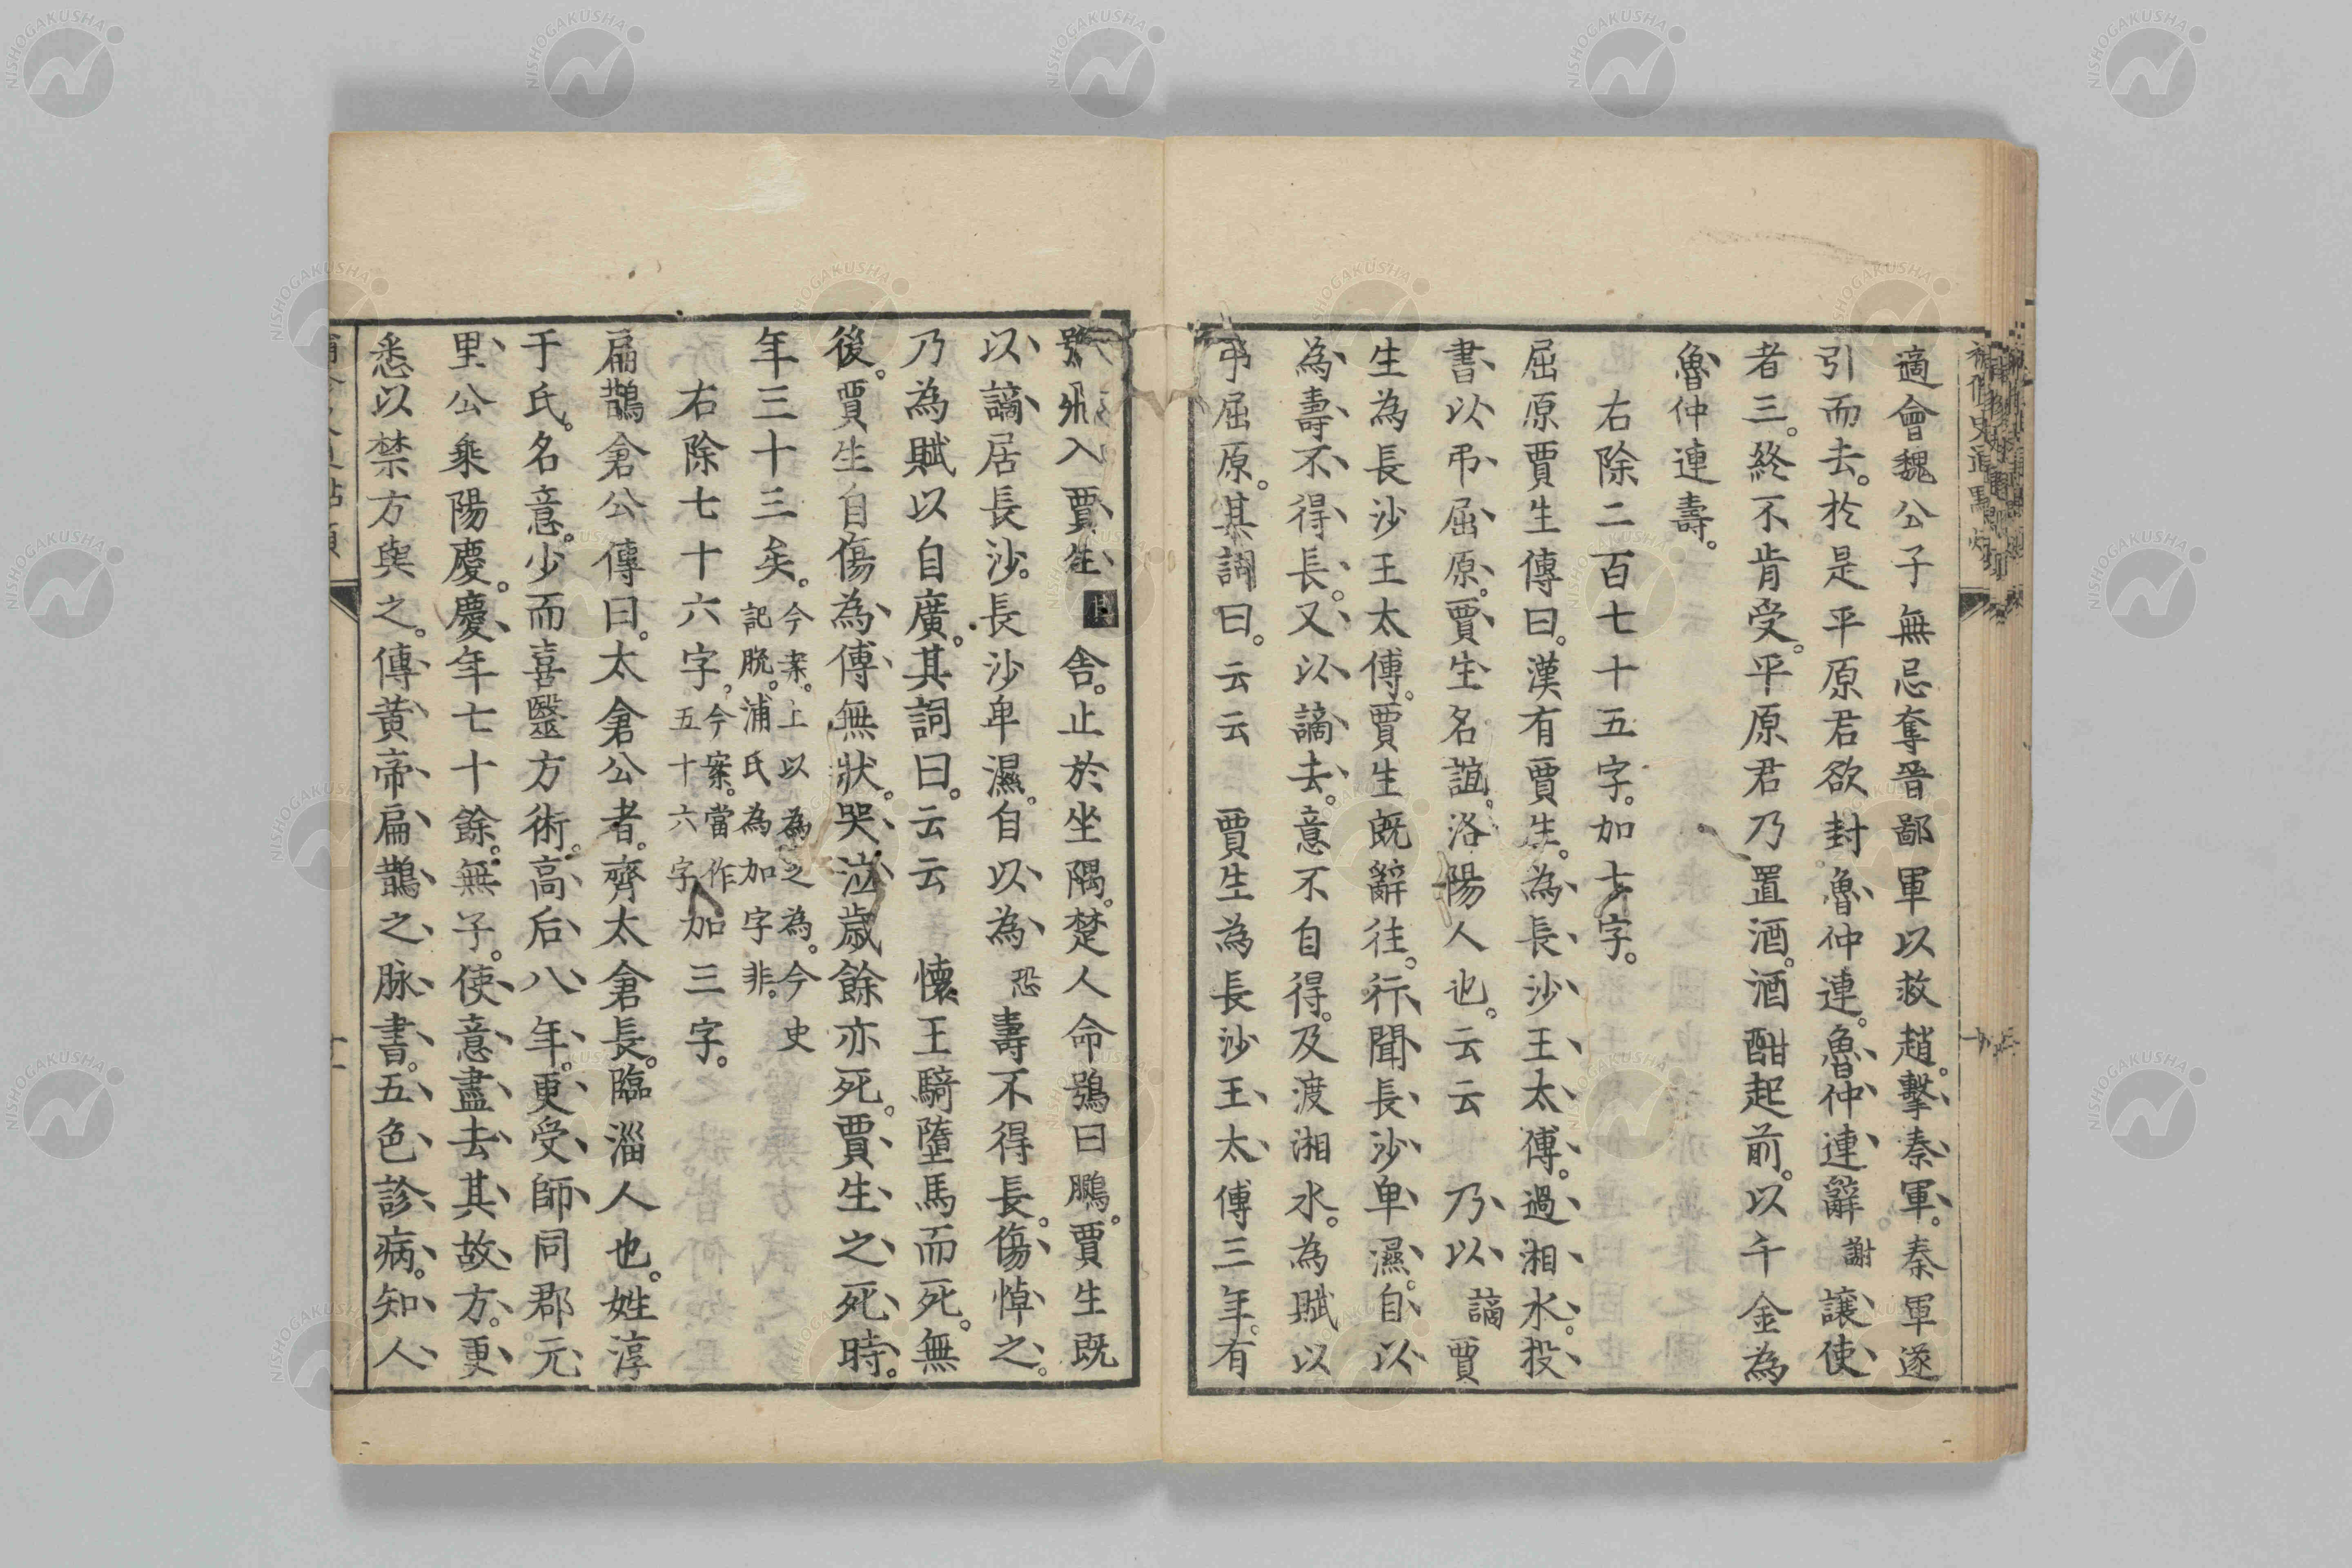 適會魏公子無忌奪晋鄙軍以救趙。擊秦軍。秦軍遂
引而去。於是平原君欲封魯仲連。魯仲連辭謝讓使
者三。終不肯受。平原君乃置酒。酒酣起前。以千金為
魯仲連壽。
右除二百七十五字。加七字。
屈原賈生傳曰。漢有賈生。為長沙王太傅。過湘水。投
書以弔屈原。賈生名誼。洛陽人也。云云 乃以謫賈
生為長沙王太傅。賈生既辭往。行聞長沙卑濕。自以
為壽不得長。又以謫去。意不自得。及渡湘水。為賦以
弔屈原。其詞曰。云云 賈生為長沙王太傅三年。有
鴞飛入賈生舎。止於坐隅。楚人命鴞曰鵩。賈生既
以謫居長沙。長沙卑濕。自以為恐壽不得長。傷悼之。
乃為賦以自廣。其詞曰。云云 懷王騎墮馬而死。無
後。賈生自傷為傅無狀。哭泣歲餘亦死。賈生之死時。
年三十三矣。今案。上以為之為。今史記脫。浦氏為加字非。
右除七十六字、今案。當作五十六字加三字。
扁鵲倉公傳曰。太倉公者。齊太倉長。臨淄人也。姓淳
于氏。名意。少而喜醫方術。高后八年。更受師同郡元
里公乘陽慶。慶年七十餘。無子。使意盡去其故方。更
悉以禁方與之。傳黃帝扁鵲之脉書。五色診病。知人